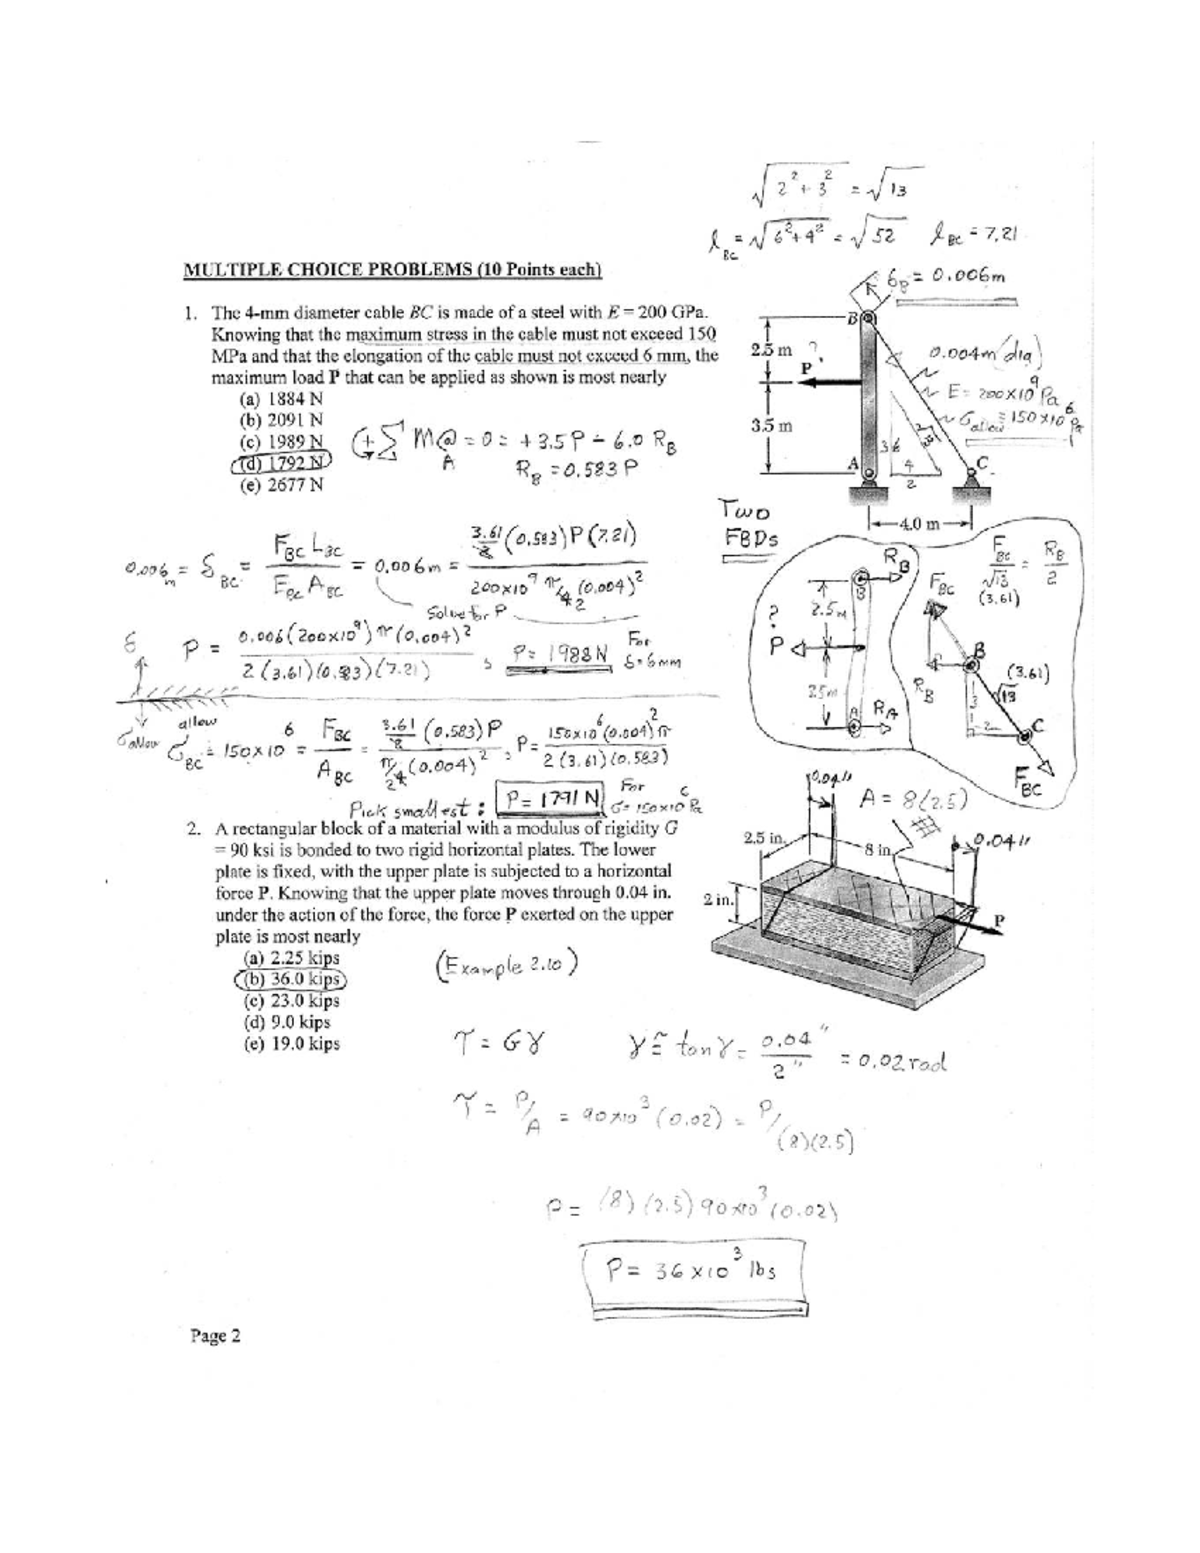 √2² + 3² = √13
l BC = √6² + 4² = √52 l BC = 7.21
MULTIPLE CHOICE PROBLEMS (10 Points each)
δB = 0.006m
1. The 4-mm diameter cable BC is made of a steel with E = 200 GPa.
Knowing that the maximum stress in the cable must not exceed 150
MPa and that the elongation of the cable must not exceed 6 mm, the
maximum load P that can be applied as shown is most nearly
(a) 1884 N
(b) 2091 N
(c) 1989 N
(d) 1792 N
(e) 2677 N
B
2.5 m ?
P
3.5 m
A
C
4.0 m
0.004m (dia)
E = 200x10⁹ Pa
σallow = 150x10⁶ Pa
36
4
2
√13
+ Σ M@A = 0 = +3.5P - 6.0 RB
RB = 0.583 P
TWO
FBDs
0.006 m = δBC = FBC LBC / EBC ABC = 0.006m = 3.61/2 (0.583)P(7.21) / 200x10⁹ π/4 (0.004)²
2
Solve for P
δ P = 0.006(200x10⁹)π(0.004)² / 2(3.61)(0.583)(7.21) , P = 1988N For δ=6mm
σallow σBC allow = 150x10⁶ = FBC / ABC = 3.61/2 (0.583)P / π/4 (0.004)² , P = 150x10⁶(0.004)²π / 2(3.61)(0.583)
2
Pick smallest : P = 1791 N For σ=150x10⁶ Pa
RB
B
2.5m
?
P
A
RA
FBC / √13 = RB / 2
(3.61)
FBC
B
RB
(3.61)
√13
3
2
C
FBC
2. A rectangular block of a material with a modulus of rigidity G
= 90 ksi is bonded to two rigid horizontal plates. The lower
plate is fixed, with the upper plate is subjected to a horizontal
force P. Knowing that the upper plate moves through 0.04 in.
under the action of the force, the force P exerted on the upper
plate is most nearly
(a) 2.25 kips
(b) 36.0 kips
(c) 23.0 kips
(d) 9.0 kips
(e) 19.0 kips
0.04"
A = 8(2.5)
2.5 in.
8 in.
0.04"
2 in.
P
(Example 2.10)
τ = Gγ γ ≅ tan γ = 0.04" / 2" = 0.02 rad
τ = P/A = 90x10³ (0.02) = P/(8)(2.5)
P = (8)(2.5) 90x10³ (0.02)
P = 36 x10³ lbs
Page 2